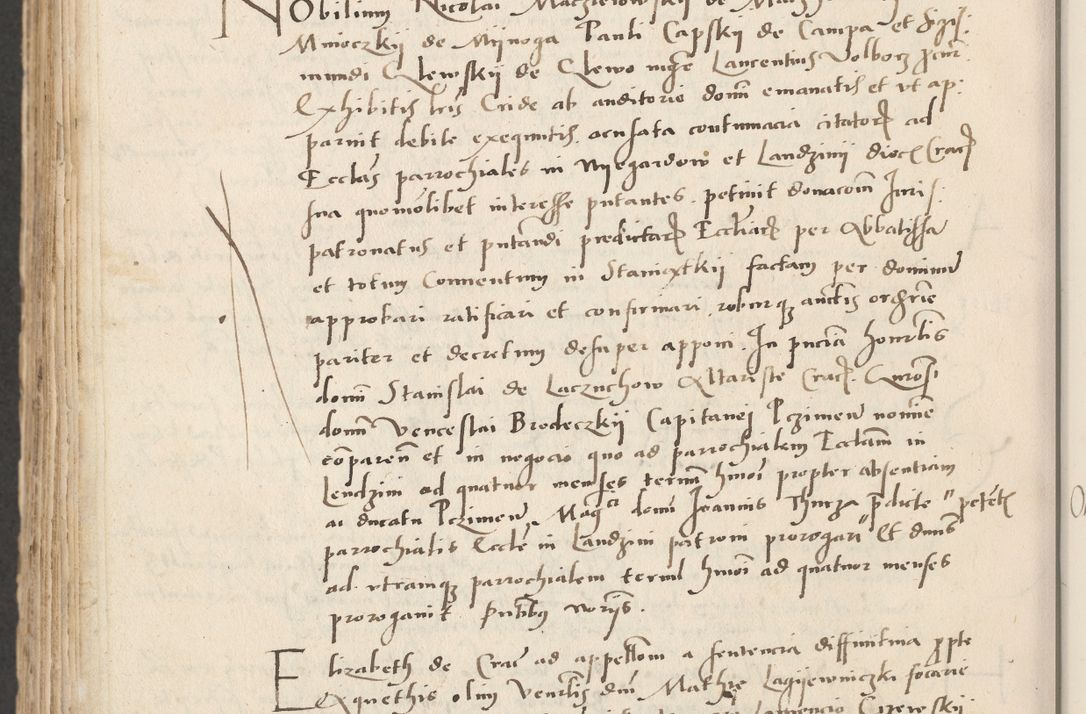 Nobilium Nicolai Maczieiowskij de
Mnioczkij de Mijnoga Pauli Capskij de Campa et Sigis
mundi Clewskij de Clewo mgre Laurentius Volborz procur
Exhibitis lris Cride ab auditorie domi emanatis et ut ap
paruit debite exequutis acusata contumacia citator ad
Ecclas parrochiales in Nijegardow et Landzinij dioc Crac
sua quomolibet interesse putantes petiuit donacom Juris
patronatus et putandi predictar Eccliar per Abbatissa
et totum Conuentum in Staniatkij factam per dominu
approbari ratificari et confirmari roburq auctis ordrie
pariter et decretum desuper apponi. In pncia honrlis
domi Stanislai de Laczuchow Altariste Crac.
domi Venceslai Brodeczkij Capitanej Pczimen nomie
comparen et in negocio quo ad parrochialem Ecclam in
Lendzini ad quatuor menses termi hmoi propter absentiam
ac ducatu Pczimen Magci domi Joannis Thurza pdicte " peten
parrochialis Eccle in Landzini patroni prorogari " Et dnus
ad utramq parrochialem termi hmoi ad quatuor menses
prorogauit pntibus
Elizabeth de Crac ad appellom a sentencia diffinitiua
Exquethis olim Venrlis dni Mathie Lagijewniczki